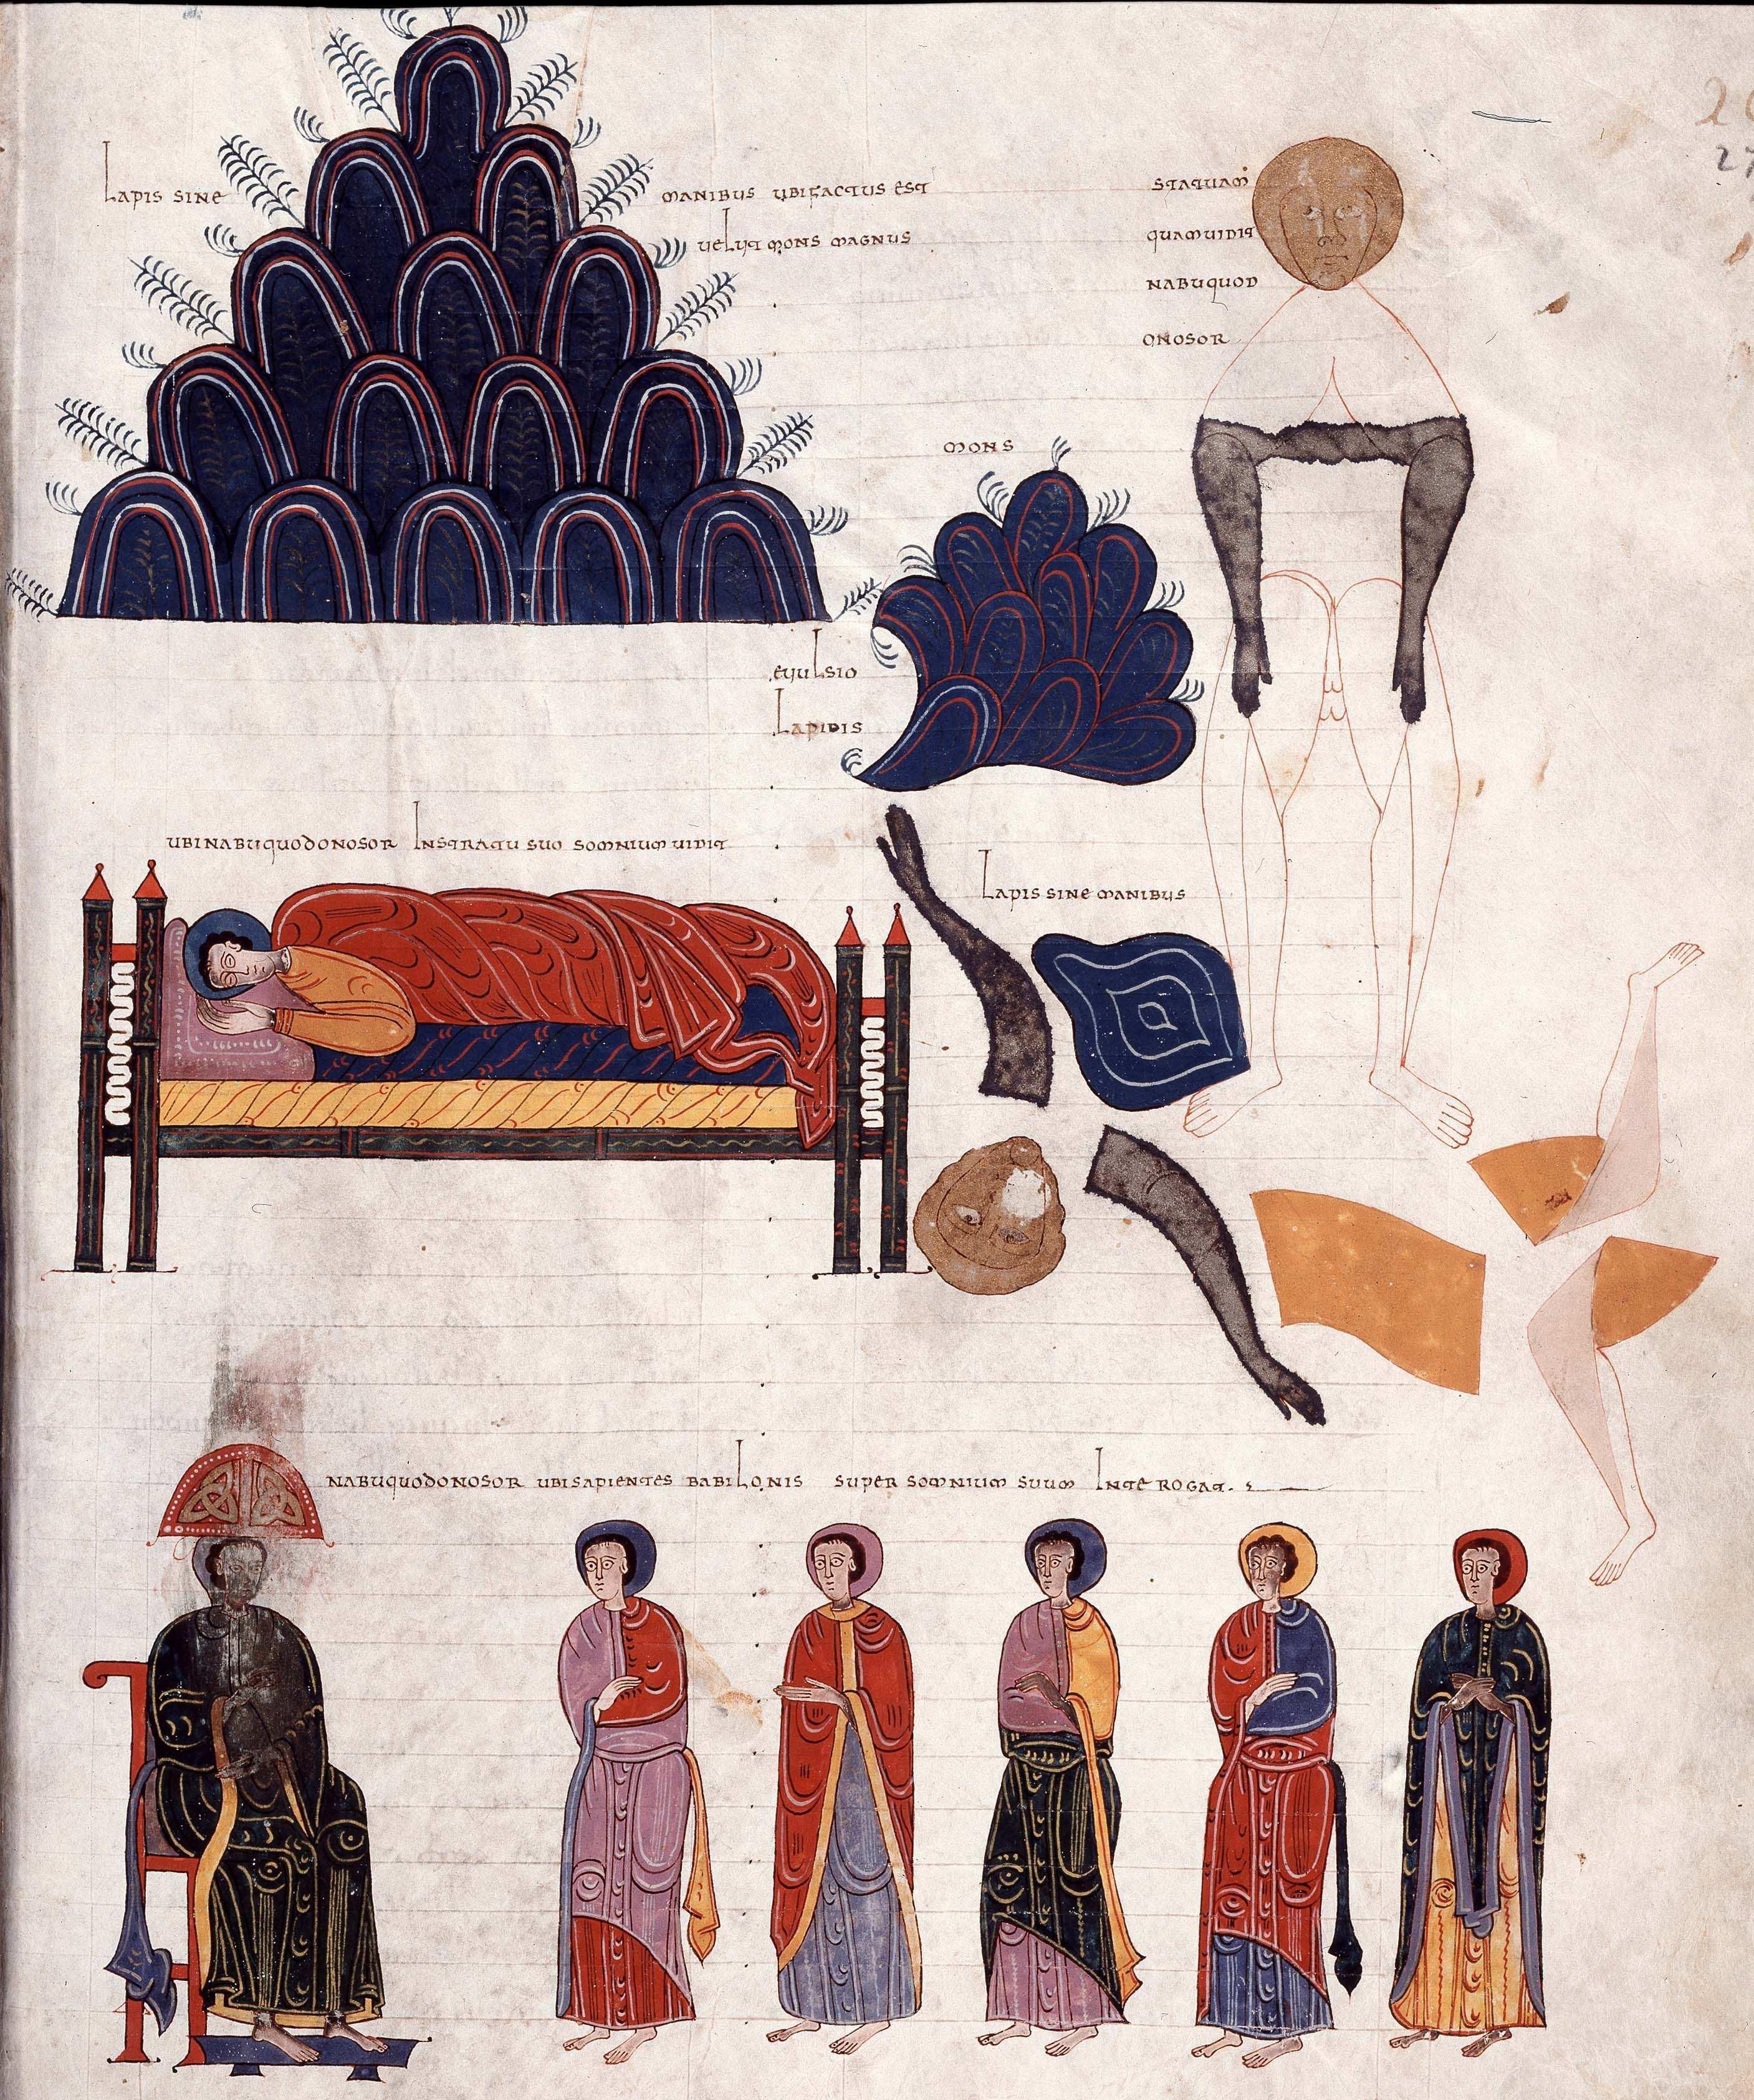 Lapis sine manibus ubi factus est
uelut mons magnus
statuam
quam uidit
nabuquod
onosor
mons
euulsio
Lapidis
ubi nabuquodonosor Instratu suo somnium uidit
Lapis sine manibus
nabuquodonosor ubi sapientes babiLonis super somnium suum Interogat.
27